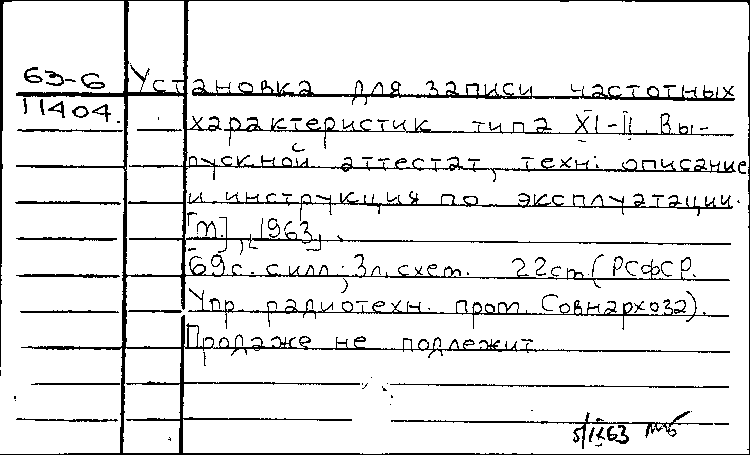 63-6 Установка для записи частотных
11404. характеристик типа XI-II. Вы-
пускной аттестат, техн. описание
и инструкция по эксплуатации.
[М.], [1963].
69с. с илл; 3л. схем. 22см. (РСФСР.
Упр. радиотехн. пром. Совнархоза).
Продаже не подлежит
5/IX63